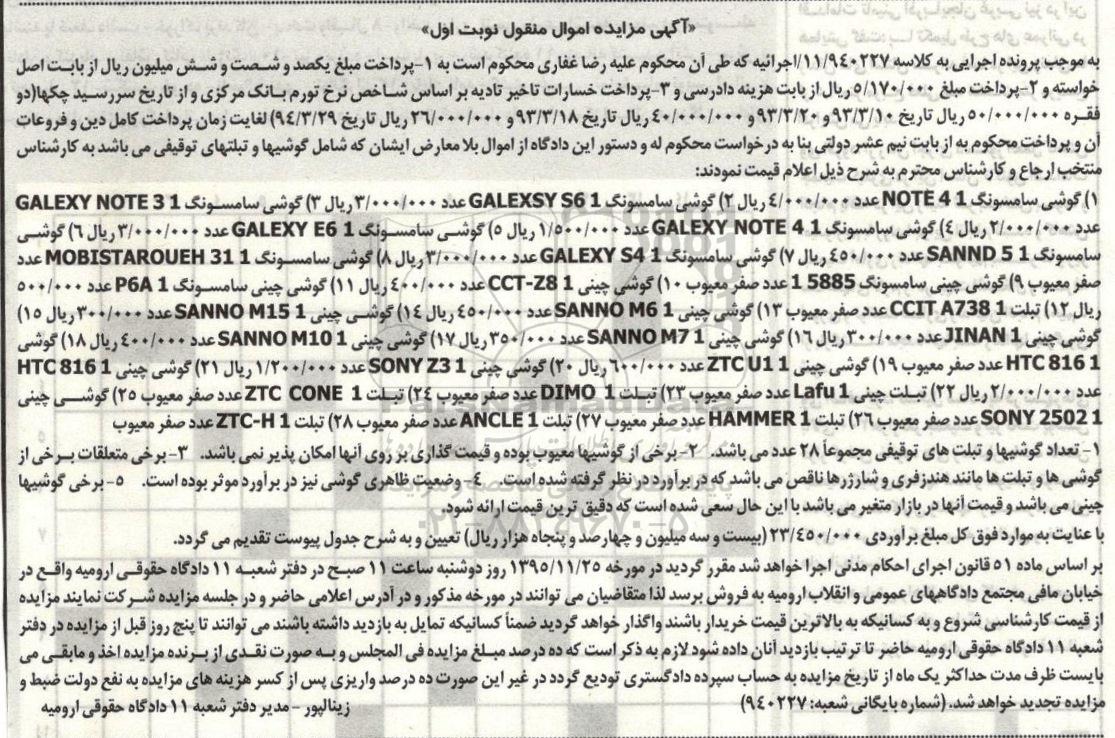 «آگهی مزایده اموال منقول نوبت اول»
به موجب پرونده اجرایی به کلاسه ۱۱/۹۴۰۲۲۷/اجرائیه که طی آن محکوم علیه رضا غفاری محکوم است به ۱-پرداخت مبلغ یکصد و شصت و شش میلیون ریال از بابت اصل
خواسته و ۲-پرداخت مبلغ ۵/۱۷۰/۰۰۰ ریال از بابت هزینه دادرسی و ۳-پرداخت خسارات تاخیر تادیه بر اساس شاخص نرخ تورم بانک مرکزی و از تاریخ سررسید چکها(دو
فقره ۵۰/۰۰۰/۰۰۰ ریال تاریخ ۹۳/۳/۱۰ و ۹۳/۳/۲۰ و ۴۰/۰۰۰/۰۰۰ ریال تاریخ ۹۳/۳/۱۸ و ۲۶/۰۰۰/۰۰۰ ریال تاریخ ۹۴/۳/۲۹) لغایت زمان پرداخت کامل دین و فروعات
آن و پرداخت محکوم به از بابت نیم عشر دولتی بنا به درخواست محکوم له و دستور این دادگاه از اموال بلا معارض ایشان که شامل گوشیها و تبلتهای توقیفی می باشد به کارشناس
منتخب ارجاع و کارشناس محترم به شرح ذیل اعلام قیمت نمودند:
۱) گوشی سامسونگ NOTE 4 1 عدد ۴/۰۰۰/۰۰۰ ریال ۲) گوشی سامسونگ GALEXSY S6 1 عدد ۳/۰۰۰/۰۰۰ ریال ۳) گوشی سامسونگ GALEXY NOTE 3 1
عدد ۲/۰۰۰/۰۰۰ ریال ۴) گوشی سامسونگ GALEXY NOTE 4 1 عدد ۱/۵۰۰/۰۰۰ ریال ۵) گوشی سامسونگ GALEXY E6 1 عدد ۳/۰۰۰/۰۰۰ ریال ۶) گوشی
سامسونگ SANND 5 1 عدد ۴۵۰/۰۰۰ ریال ۷) گوشی سامسونگ GALEXY S4 1 عدد ۳/۰۰۰/۰۰۰ ریال ۸) گوشی سامسونگ MOBISTAROUEH 31 1 عدد
صفر معیوب ۹) گوشی چینی سامسونگ 5885 1 عدد صفر معیوب ۱۰) گوشی چینی CCT-Z8 1 عدد ۴۰۰/۰۰۰ ریال ۱۱) گوشی چینی سامسونگ P6A 1 عدد ۵۰۰/۰۰۰
ریال ۱۲) تبلت CCIT A738 1 عدد صفر معیوب ۱۳) گوشی چینی SANNO M6 1 عدد ۴۵۰/۰۰۰ ریال ۱۴) گوشی چینی SANNO M15 1 عدد ۳۰۰/۰۰۰ ریال ۱۵)
گوشی چینی JINAN 1 عدد ۳۰۰/۰۰۰ ریال ۱۶) گوشی چینی SANNO M7 1 عدد ۳۵۰/۰۰۰ ریال ۱۷) گوشی چینی SANNO M10 1 عدد ۴۰۰/۰۰۰ ریال ۱۸) گوشی
HTC 816 1 عدد صفر معیوب ۱۹) گوشی چینی ZTC U1 1 عدد ۶۰۰/۰۰۰ ریال ۲۰) گوشی چینی SONY Z3 1 عدد ۱/۲۰۰/۰۰۰ ریال ۲۱) گوشی چینی HTC 816 1
عدد ۲/۰۰۰/۰۰۰ ریال ۲۲) تبلت چینی Lafu 1 عدد صفر معیوب ۲۳) تبلت DIMO 1 عدد صفر معیوب ۲۴) تبلت ZTC CONE 1 عدد صفر معیوب ۲۵) گوشی چینی
SONY 2502 1 عدد صفر معیوب ۲۶) تبلت HAMMER 1 عدد صفر معیوب ۲۷) تبلت ANCLE 1 عدد صفر معیوب ۲۸) تبلت ZTC-H 1 عدد صفر معیوب
۱- تعداد گوشیها و تبلت های توقیفی مجموعاً ۲۸ عدد می باشد. ۲- برخی از گوشیها معیوب بوده و قیمت گذاری بر روی آنها امکان پذیر نمی باشد. ۳-برخی متعلقات برخی از
گوشی ها و تبلت ها مانند هندزفری و شارژرها ناقص می باشد که در برآورد در نظر گرفته شده است. ۴- وضعیت ظاهری گوشی نیز در برآورد موثر بوده است. ۵- برخی گوشیها
چینی می باشد و قیمت آنها در بازار متغیر می باشد با این حال سعی شده است که دقیق ترین قیمت ارائه شود.
با عنایت به موارد فوق کل مبلغ برآوردی ۲۳/۴۵۰/۰۰۰ (بیست و سه میلیون و چهارصد و پنجاه هزار ریال) تعیین و به شرح جدول پیوست تقدیم می گردد.
بر اساس ماده ۵۱ قانون اجرای احکام مدنی اجرا خواهد شد مقرر گردید در مورخه ۱۳۹۵/۱۱/۲۵ روز دوشنبه ساعت ۱۱ صبح در دفتر شعبه ۱۱ دادگاه حقوقی ارومیه واقع در
خیابان مافی مجتمع دادگاههای عمومی و انقلاب ارومیه به فروش برسد لذا متقاضیان می توانند در مورخه مذکور و در آدرس اعلامی حاضر و در جلسه مزایده شرکت نمایند مزایده
از قیمت کارشناسی شروع و به کسانیکه به بالاترین قیمت خریدار باشند واگذار خواهد گردید ضمناً کسانیکه تمایل به بازدید داشته باشند می توانند تا پنج روز قبل از مزایده در دفتر
شعبه ۱۱ دادگاه حقوقی ارومیه حاضر تا ترتیب بازدید آنان داده شود لازم به ذکر است که ده درصد مبلغ مزایده فی المجلس و به صورت نقدی از برنده مزایده اخذ و مابقی می
بایست ظرف مدت حداکثر یک ماه از تاریخ مزایده به حساب سپرده دادگستری تودیع گردد در غیر این صورت ده درصد واریزی پس از کسر هزینه های مزایده به نفع دولت ضبط و
مزایده تجدید خواهد شد. (شماره بایگانی شعبه: ۹۴۰۲۲۷) زینالپور - مدیر دفتر شعبه ۱۱ دادگاه حقوقی ارومیه
۰۲۱-۸۸۳۴۹۶۷۰-۵